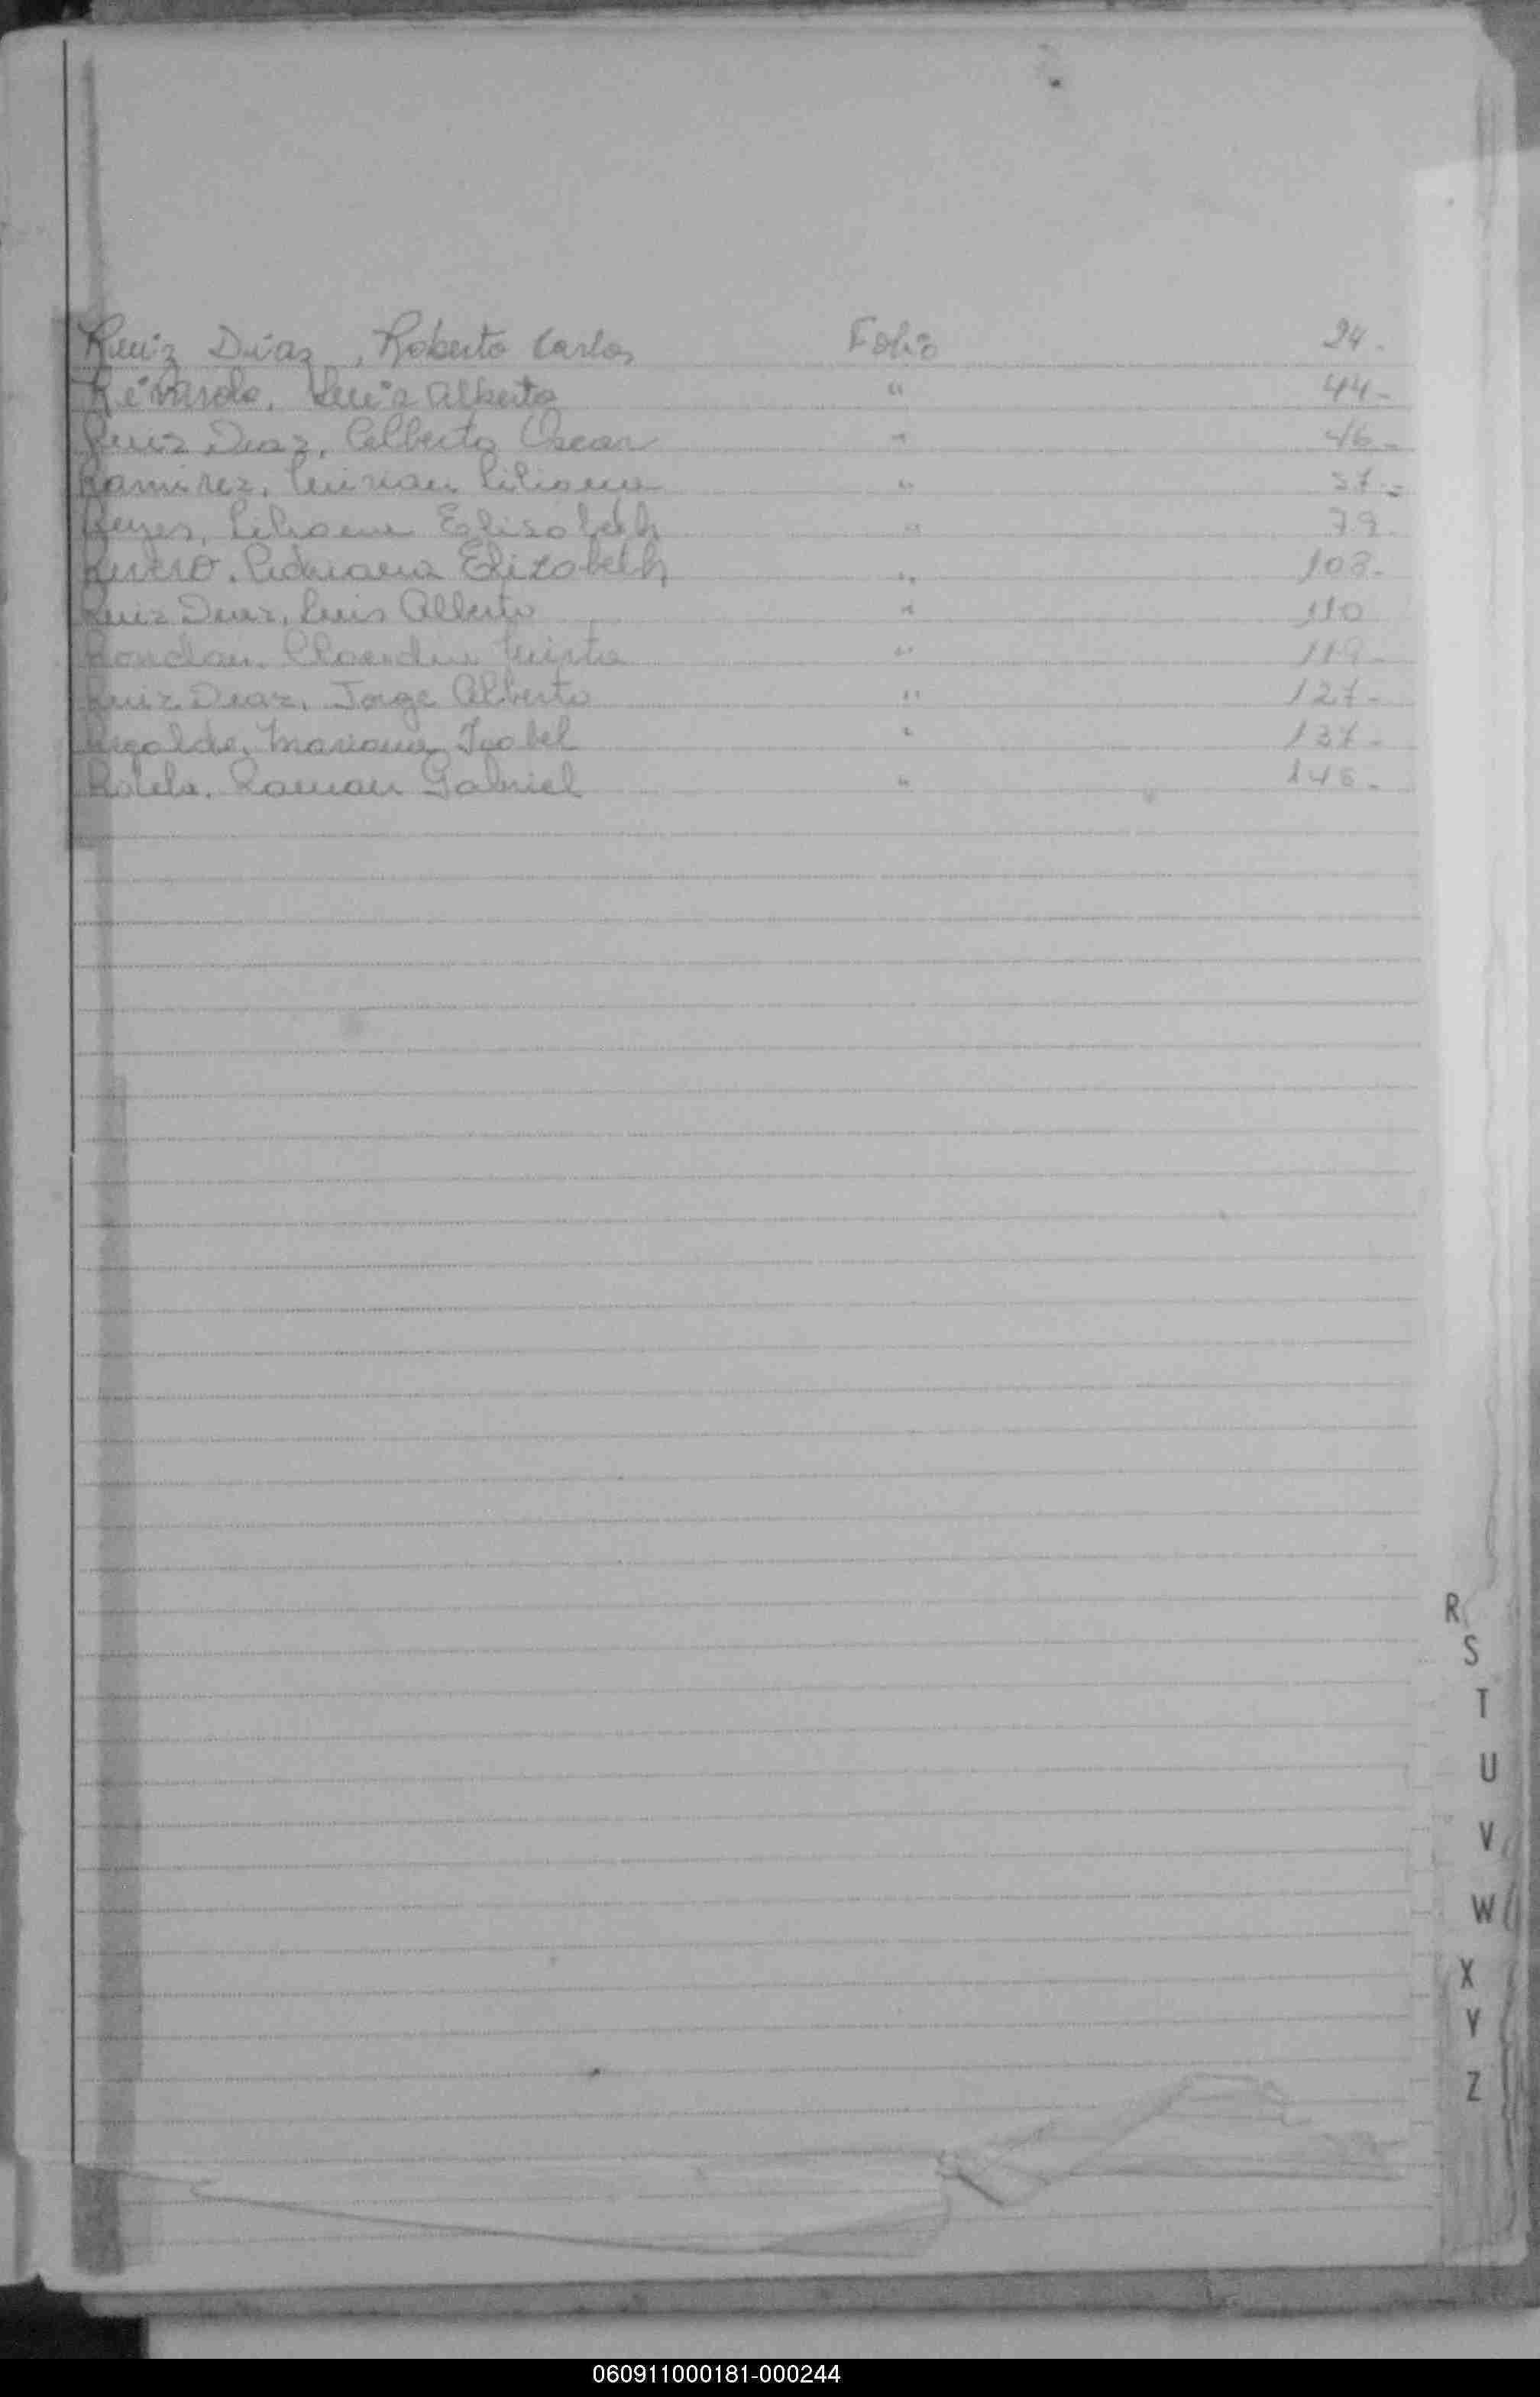 Ruiz Diaz, Roberto Carlos Folio 24.
Rivarola, Luis Alberto " 44-
Ruiz Diaz, Alberto Oscar " 46-
Ramirez, Mirian Liliana " 57-
Reyes, Liliana Elizabeth " 79.
Rivero, Adriana Elizabeth " 108-
Ruiz Diaz, Luis Alberto " 110
Rondan, Claudia " 119-
Ruiz Diaz, Jorge Alberto " 127-
Mariana Isabel " 137-
Rotela, Raman Gabriel " 146-
R
S
T
U
V
W
X
Y
Z
060911000181-000244